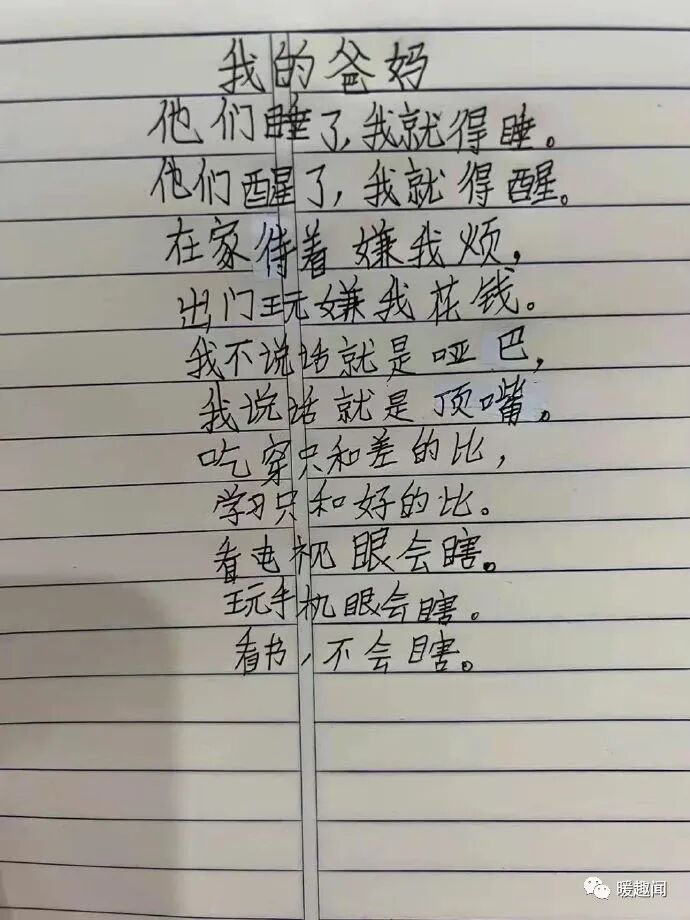 我的爸妈
他们睡了,我就得睡。
他们醒了,我就得醒。
在家待着嫌我烦,
出门玩嫌我花钱。
我不说话就是哑巴,
我说话就是顶嘴。
吃穿只和差的比,
学习只和好的比。
看电视眼会瞎。
玩手机眼会瞎。
看书,不会瞎。
暖趣闻